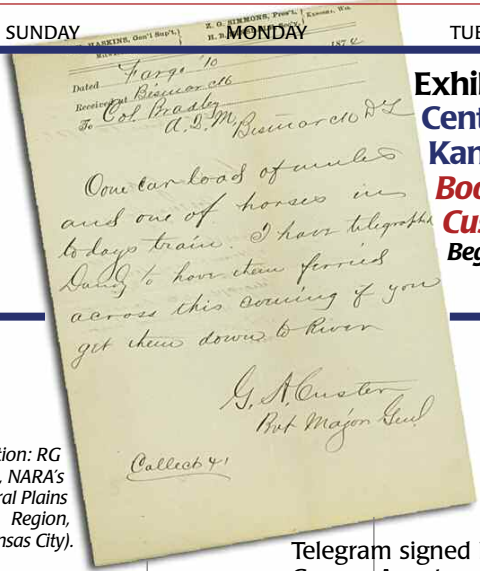 SUNDAY
MONDAY
TUE
HASKINS, Gen'l Sup't.
Z. G. SIMMONS, Pres't.
Kenosha, Wis.
1874
Dated Fargo 10
Received at Bismarck
To Col. Bradley
A. Q. M. Bismarck D T
One car load of mules
and one of horses in
todays train. I have telegraphed
Dandy to have them ferried
across this evening if you
get them down to River
G. A. Custer
Bvt Major Genl
Collect 41
Exhi
Cent
Kan
Boo
Cus
Beg
tion: RG
, NARA's
ral Plains
Region,
nsas City).
Telegram signed